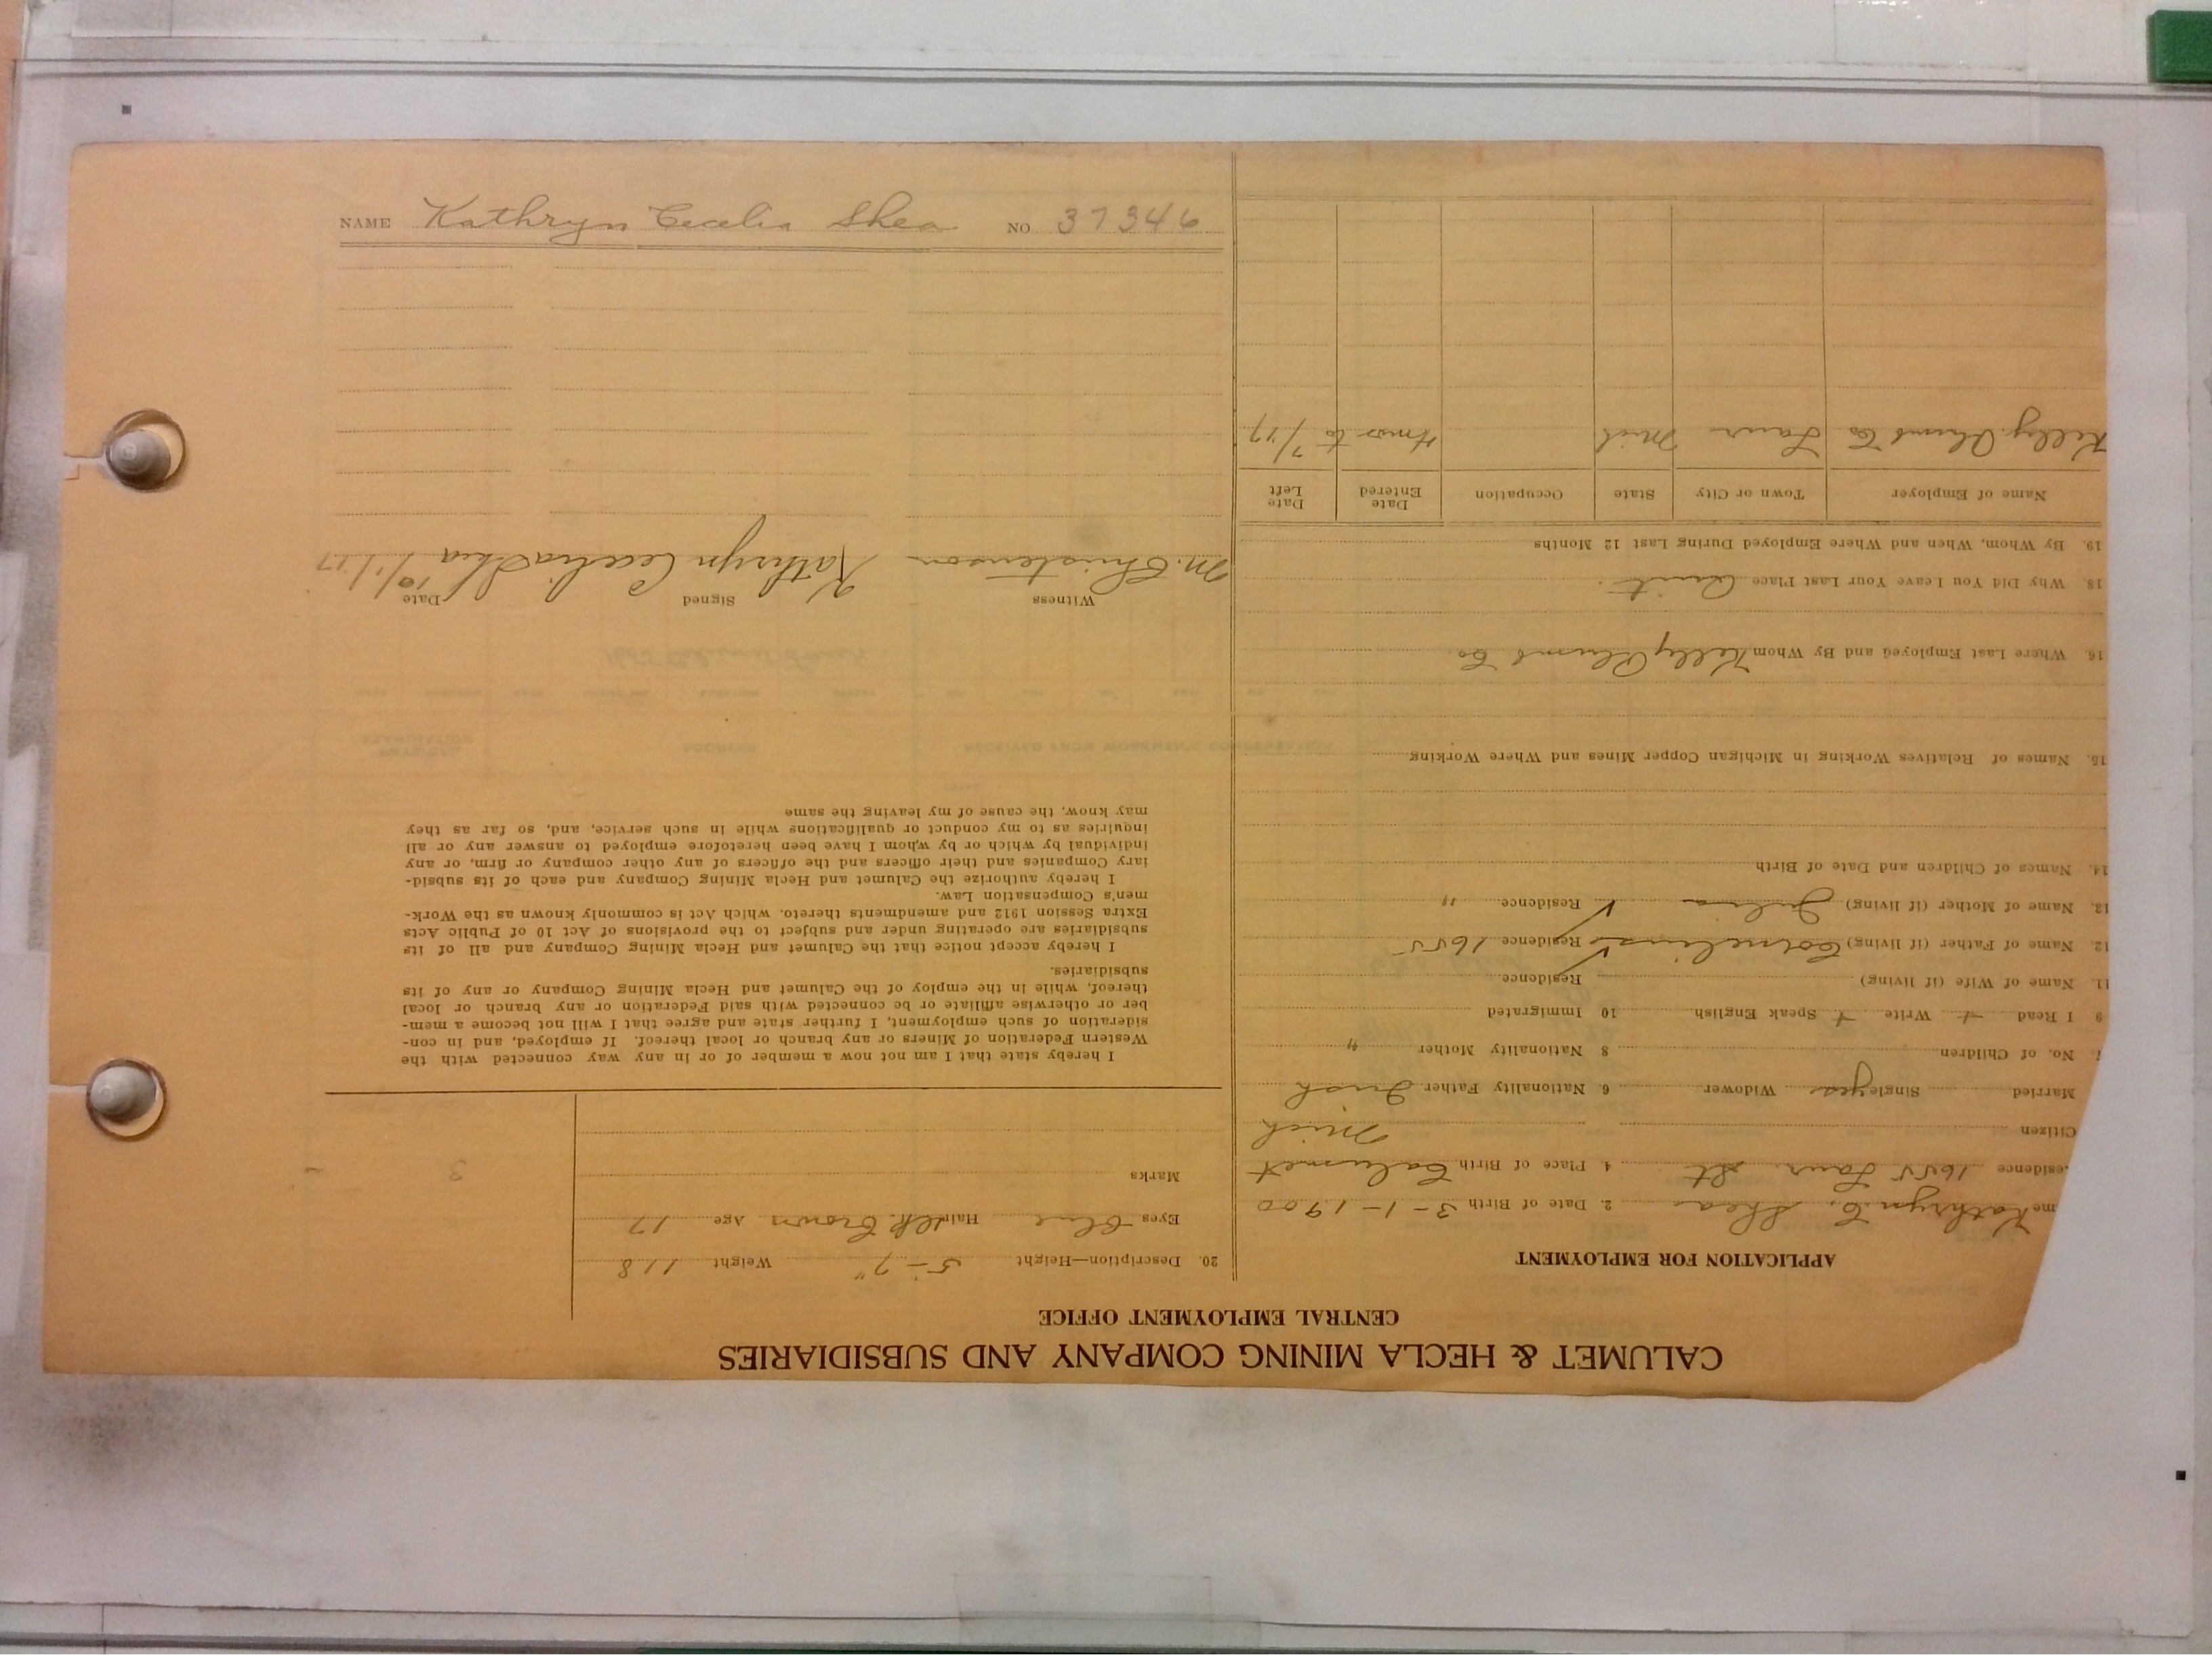 NAME Kathryn Cecelia Shea NO 37346
CALUMET & HECLA MINING COMPANY AND SUBSIDIARIES
CENTRAL EMPLOYMENT OFFICE
APPLICATION FOR EMPLOYMENT
me Kathryn C. Shea 2. Date of Birth 3-1-1900
esidence 1655 Laur. St 4. Place of Birth Calumet
Citizen Mich
Married Single yes Widower 6. Nationality Father Irish
7. No. of Children 8 Nationality Mother "
9 I Read + Write + Speak English 10 Immigrated
11. Name of Wife (if living) Residence
12. Name of Father (if living) Cornelius Residence 1655
13. Name of Mother (if living) Julia Residence "
14. Names of Children and Date of Birth
15. Names of Relatives Working in Michigan Copper Mines and Where Working
16. Where Last Employed and By Whom Kelly Plumb Co.
18. Why Did You Leave Your Last Place Quit.
19. By Whom, When and Where Employed During Last 12 Months
Name of Employer Town or City State Occupation Date Entered Date Left
Kelly Plumb Co Laur. Mich 4mos to 7/17
20. Description—Height 5-7" Weight 118
Eyes blue Hair dk. brown Age 17
Marks
3 -
I hereby state that I am not now a member of or in any way connected with the
Western Federation of Miners or any branch or local thereof. If employed, and in con-
sideration of such employment, I further state and agree that I will not become a mem-
ber or otherwise affiliate or be connected with said Federation or any branch or local
thereof, while in the employ of the Calumet and Hecla Mining Company or any of its
subsidiaries.
I hereby accept notice that the Calumet and Hecla Mining Company and all of its
subsidiaries are operating under and subject to the provisions of Act 10 of Public Acts
Extra Session 1912 and amendments thereto, which Act is commonly known as the Work-
men's Compensation Law.
I hereby authorize the Calumet and Hecla Mining Company and each of its subsid-
iary Companies and their officers and the officers of any other company or firm, or any
individual by which or by whom I have been heretofore employed to answer any or all
inquiries as to my conduct or qualifications while in such service, and, so far as they
may know, the cause of my leaving the same
Witness Signed Date
M. Christenson Kathryn Cecelia Shea 10/1/17